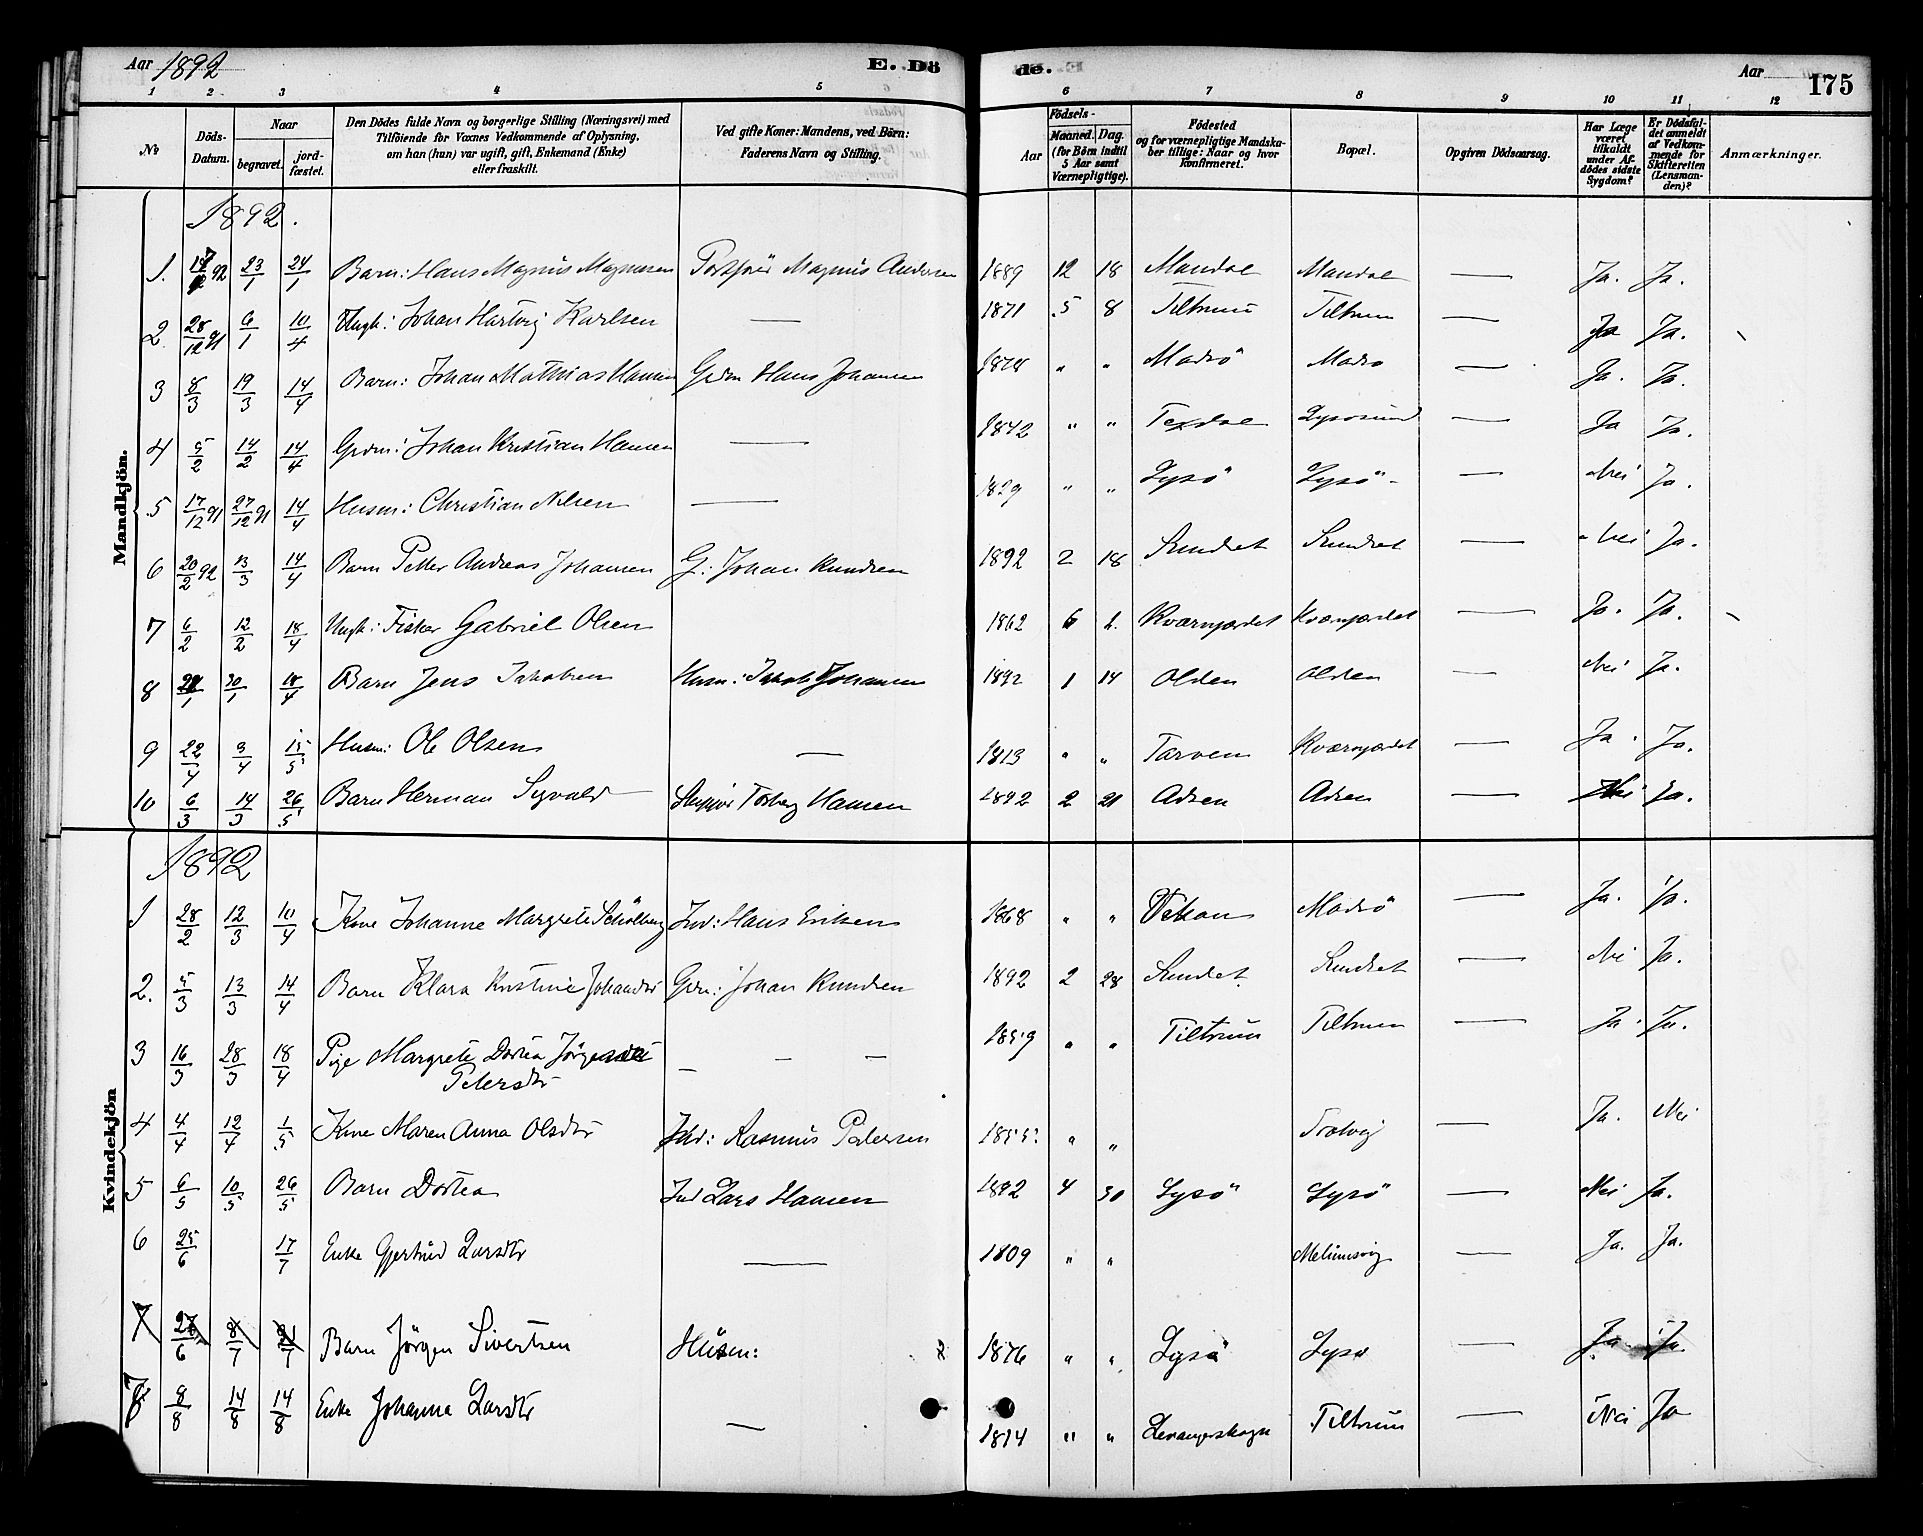 Aar 1892 E. Dö
de. Aar 175
1 2 3 4 5 6 7 8 9 10 11 12
No Döds-Datum. Naar begravet. jordfæstet. Den Dödes fulde Navn og borgerlige Stilling (Næringsvei) med Tilföiende for Voxnes Vedkommende af Oplysning, om han (hun) var ugift, gift, Enkemand (Enke) eller fraskilt. Ved gifte Koner: Mandens, ved Börn: Faderens Navn og Stilling.
Aar Födsels- Maaned. Dag. (for Börn indtil 5 Aar samt Værnepligtige). Födested og for værnepligtige Mandskaber tillige: Naar og hvor konfirmeret. Bopæl. Opgiven Dödsaarsag. Har Læge været tilkaldt under Afdödes sidste Sygdom? Er Dödsfaldet anmeldt af Vedkommende for Skifteretten (Lensmanden)? Anmærkninger.
Mandkjön.
1892.
1. 92 23/1 24/1 Barn: Hans Magnus Magnusen Magnus Andersen 1889 12 18 Mandal Mandal — Ja. Ja.
2. 28/12 91 6/1 10/4 Ungk: Johan Hartvig Karlsen — 1871 5 8 Tiltrum Tiltrum — Ja Ja.
3 8/3 19/3 14/4 Barn: Johan Mathias Hansen Grdm Hans Johansen 1878 " " Madsö Madsö — Ja. Ja.
4 5/2 14/2 14/4 Grdm: Johan Kristian Hansen — 1842 " " Texdal Lysosund — Ja Ja.
5 17/12 91 27/12 91 14/4 Husm: Christian Nilsen — 1829 " " Lysö Lysö — Nei Ja.
6 20/2 92 13/3 14/4 Barn Petter Andreas Johansen G: Johan Knudsen 1892 2 18 Sundet Sundet — Nei Ja.
7 6/2 12/2 18/4 Ungk: Fisker Gabriel Olsen 1862 6 Kværnjærdet Kværnjærdet — Ja. Ja.
8 30/1 18/4 Barn Jens Jakobsen Husm: Jakob Johansen 1892 1 14 Olden Olden — Nei Ja.
9 22/4 3/4 15/5 Husm: Ole Olsen — 1813 " " Tarven Kværnjærdet — Ja. Ja.
10 6/3 14/3 26/5 Barn Herman Sigvald Torberg Hansen 1892 2 21 Adsen Adsen — Nei Ja.
Kvindekjön
1892
1 28/2 12/3 10/4 Kone Johanne Margrete Schölberg Ind: Hans Eriksen 1868 " " Madsö — Ja. Ja.
2. 5/3 13/3 14/4 Barn Klara Kristine Johansdtr Grdm: Johan Knudsen 1892 2 28 Sundet Sundet — Nei Ja.
3 16/3 28/3 18/4 Pige Margrete Dortea — — — 1859 " " Tiltrum Tiltrum — Ja. Ja.
Petersdtr
4 4/4 12/4 1/5 Kone Maren Anna Olsdtr Ind: Rasmus Pedersen 1855 " " — Ja. Nei
5 6/5 10/5 26/5 Barn Dortea Ind Lars Hansen 1892 4 30 Lysö Lysö — Nei Ja.
6 25/6 17/7 Enke Gjertrud Larsdtr — 1809 " " — Ja. Ja.
7 8/7 Barn Jörgen Sivertsen Husm: 1876 " " Lysö Lysö — Ja. Ja.
8 8/8 14/8 14/8 Enke Johanna Larsdtr — 1814 " " Levangerskogn Tiltrum — Nei Ja